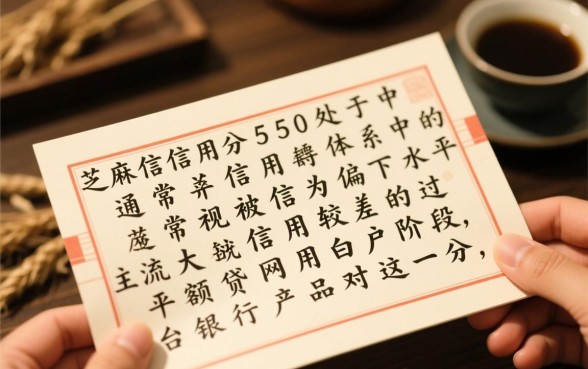 芝麻信信用分550处于中
通常莽信用体系中的
常视被信为偏下水平
主流大信用较差的过
平额贷网用白户阶段，
台银行产品对这一分，